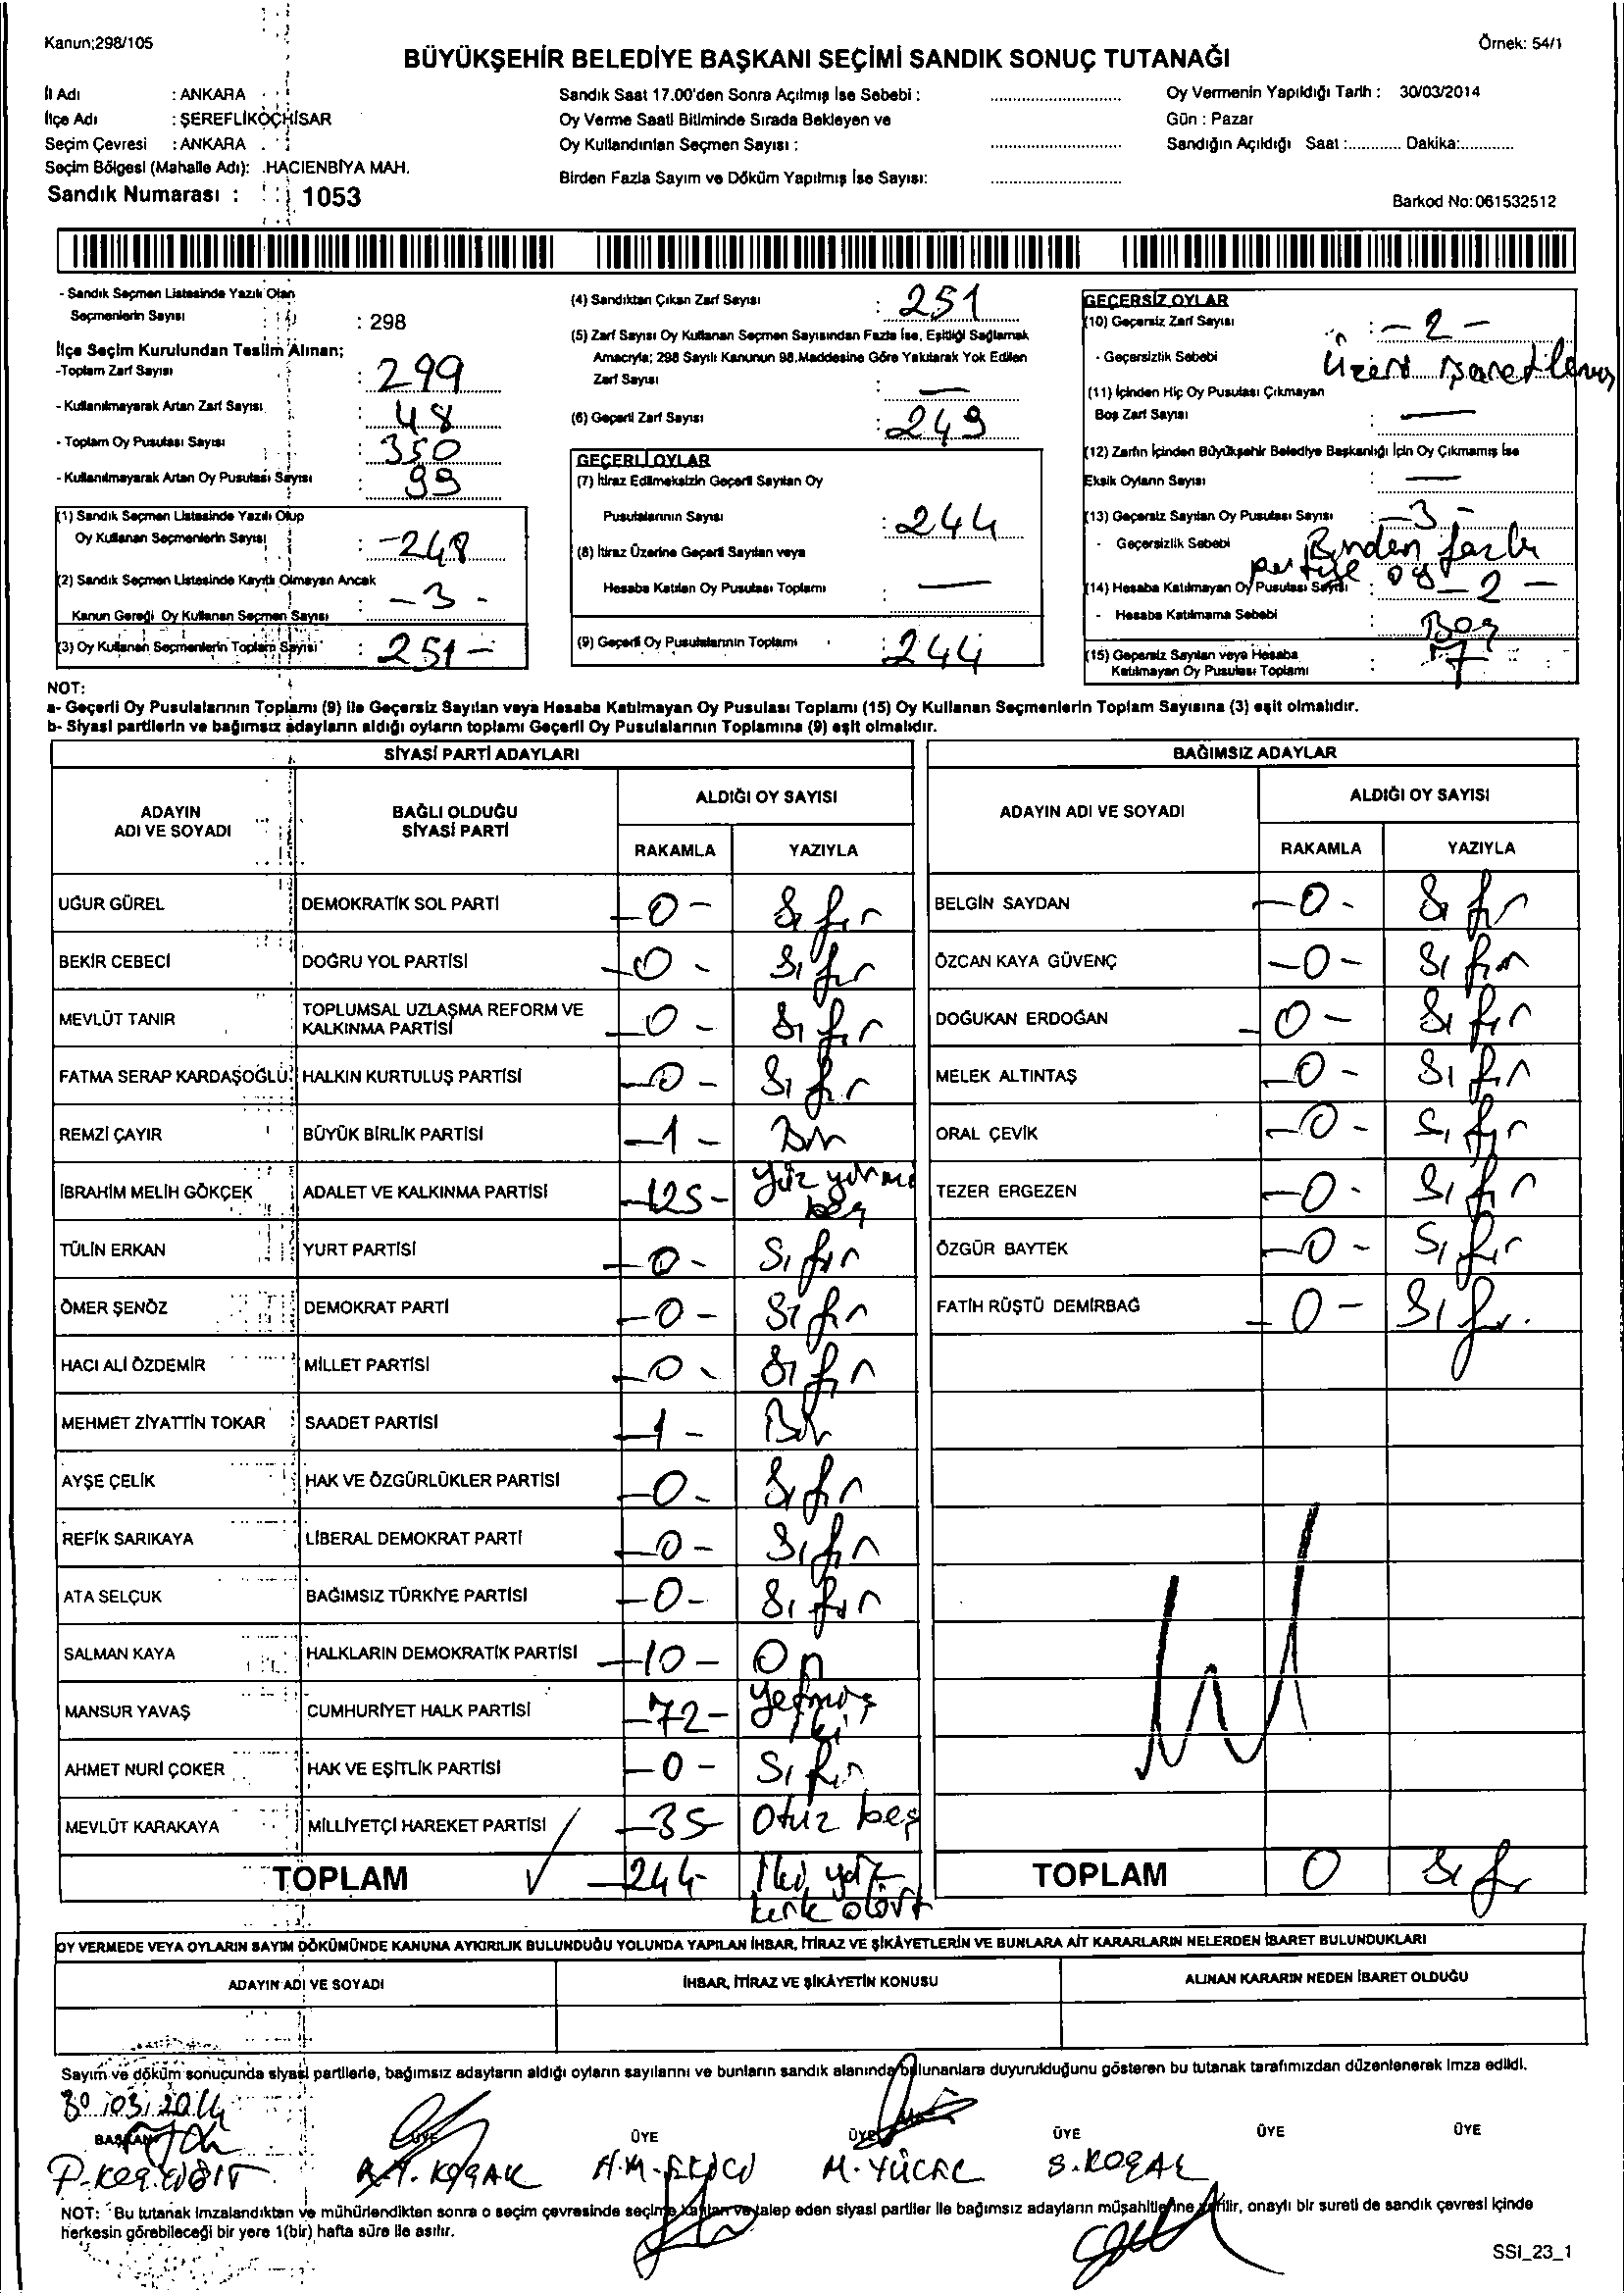 Kanun;298/105
Örnek: 54/1
BÜYÜKŞEHİR BELEDİYE BAŞKANI SEÇİMİ SANDIK SONUÇ TUTANAĞI
İl Adı : ANKARA
İlçe Adı : ŞEREFLİKOÇHİSAR
Seçim Çevresi : ANKARA
Seçim Bölgesi (Mahalle Adı): HACIENBİYA MAH.
Sandık Numarası : 1053
Sandık Saat 17.00'den Sonra Açılmış İse Sebebi : ........................
Oy Verme Saati Bitiminde Sırada Bekleyen ve
Oy Kullandırılan Seçmen Sayısı : ........................
Birden Fazla Sayım ve Döküm Yapılmış İse Sayısı: ........................
Oy Vermenin Yapıldığı Tarih : 30/03/2014
Gün : Pazar
Sandığın Açıldığı Saat :............ Dakika:............
Barkod No: 061532512
- Sandık Seçmen Listesinde Yazılı Olan
Seçmenlerin Sayısı : 298
İlçe Seçim Kurulundan Teslim Alınan;
-Toplam Zarf Sayısı : 299
- Kullanılmayarak Artan Zarf Sayısı : 48
- Toplam Oy Pusulası Sayısı : 350
- Kullanılmayarak Artan Oy Pusulası Sayısı : 99
(1) Sandık Seçmen Listesinde Yazılı Olup
Oy Kullanan Seçmenlerin Sayısı : -248
(2) Sandık Seçmen Listesinde Kayıtlı Olmayan Ancak
Kanun Gereği Oy Kullanan Seçmen Sayısı : -3-
(3) Oy Kullanan Seçmenlerin Toplam Sayısı : 251-
(4) Sandıktan Çıkan Zarf Sayısı : 251
(5) Zarf Sayısı Oy Kullanan Seçmen Sayısından Fazla İse, Eşitliği Sağlamak
Amacıyla; 298 Sayılı Kanunun 98.Maddesine Göre Yakılarak Yok Edilen
Zarf Sayısı : —
(6) Geçerli Zarf Sayısı : 249
GEÇERLİ OYLAR
(7) İtiraz Edilmeksizin Geçerli Sayılan Oy
Pusulalarının Sayısı : 244
(8) İtiraz Üzerine Geçerli Sayılan veya
Hesaba Katılan Oy Pusulası Toplamı : —
(9) Geçerli Oy Pusulalarının Toplamı : 244
GEÇERSİZ OYLAR
(10) Geçersiz Zarf Sayısı : -2-
- Geçersizlik Sebebi Üzeri işaretlenmiş
(11) İçinden Hiç Oy Pusulası Çıkmayan
Boş Zarf Sayısı : —
(12) Zarfın İçinden Büyükşehir Belediye Başkanlığı İçin Oy Çıkmamış İse
Eksik Oyların Sayısı : —
(13) Geçersiz Sayılan Oy Pusulası Sayısı : -3-
- Geçersizlik Sebebi Birden fazla
partiye oy
(14) Hesaba Katılmayan Oy Pusulası Sayısı : -2-
- Hesaba Katılmama Sebebi Boş
(15) Geçersiz Sayılan veya Hesaba
Katılmayan Oy Pusulası Toplamı : 7
NOT:
a- Geçerli Oy Pusulalarının Toplamı (9) ile Geçersiz Sayılan veya Hesaba Katılmayan Oy Pusulası Toplamı (15) Oy Kullanan Seçmenlerin Toplam Sayısına (3) eşit olmalıdır.
b- Siyasi partilerin ve bağımsız adayların aldığı oyların toplamı Geçerli Oy Pusulalarının Toplamına (9) eşit olmalıdır.
SİYASİ PARTİ ADAYLARI
ADAYIN ADI VE SOYADI BAĞLI OLDUĞU SİYASİ PARTİ ALDIĞI OY SAYISI
RAKAMLA YAZIYLA
UĞUR GÜREL DEMOKRATİK SOL PARTİ -0- Sıfır
BEKİR CEBECİ DOĞRU YOL PARTİSİ -0- Sıfır
MEVLÜT TANIR TOPLUMSAL UZLAŞMA REFORM VE KALKINMA PARTİSİ -0- Sıfır
FATMA SERAP KARDAŞOĞLU HALKIN KURTULUŞ PARTİSİ -0- Sıfır
REMZİ ÇAYIR BÜYÜK BİRLİK PARTİSİ -1- Bir
İBRAHİM MELİH GÖKÇEK ADALET VE KALKINMA PARTİSİ -125- Yüz yirmi beş
TÜLİN ERKAN YURT PARTİSİ -0- Sıfır
ÖMER ŞENÖZ DEMOKRAT PARTİ -0- Sıfır
HACI ALİ ÖZDEMİR MİLLET PARTİSİ -0- Sıfır
MEHMET ZİYATTİN TOKAR SAADET PARTİSİ -1- Bir
AYŞE ÇELİK HAK VE ÖZGÜRLÜKLER PARTİSİ -0- Sıfır
REFİK SARIKAYA LİBERAL DEMOKRAT PARTİ -0- Sıfır
ATA SELÇUK BAĞIMSIZ TÜRKİYE PARTİSİ -0- Sıfır
SALMAN KAYA HALKLARIN DEMOKRATİK PARTİSİ -10- On
MANSUR YAVAŞ CUMHURİYET HALK PARTİSİ -72- Yetmiş iki
AHMET NURİ ÇOKER HAK VE EŞİTLİK PARTİSİ -0- Sıfır
MEVLÜT KARAKAYA MİLLİYETÇİ HAREKET PARTİSİ -35- Otuz beş
TOPLAM -244- İki yüz kırk dört
BAĞIMSIZ ADAYLAR
ADAYIN ADI VE SOYADI ALDIĞI OY SAYISI
RAKAMLA YAZIYLA
BELGİN SAYDAN -0- Sıfır
ÖZCAN KAYA GÜVENÇ -0- Sıfır
DOĞUKAN ERDOĞAN -0- Sıfır
MELEK ALTINTAŞ -0- Sıfır
ORAL ÇEVİK -0- Sıfır
TEZER ERGEZEN -0- Sıfır
ÖZGÜR BAYTEK -0- Sıfır
FATİH RÜŞTÜ DEMİRBAĞ -0- Sıfır
TOPLAM 0 Sıfır
OY VERMEDE VEYA OYLARIN SAYIM DÖKÜMÜNDE KANUNA AYKIRILIK BULUNDUĞU YOLUNDA YAPILAN İHBAR, İTİRAZ VE ŞİKÂYETLERİN VE BUNLARA AİT KARARLARIN NELERDEN İBARET BULUNDUKLARI
ADAYIN ADI VE SOYADI İHBAR, İTİRAZ VE ŞİKÂYETİN KONUSU ALINAN KARARIN NEDEN İBARET OLDUĞU
Sayım ve döküm sonucunda siyasi partilerle, bağımsız adayların aldığı oyların sayılarını ve bunların sandık alanında bulunanlara duyurulduğunu gösteren bu tutanak tarafımızdan düzenlenerek imza edildi.
30/03/2014
BAŞKAN ÜYE ÜYE ÜYE ÜYE ÜYE ÜYE
KOÇAK M. YÜCEL S. KOÇAK
NOT: Bu tutanak imzalandıktan ve mühürlendikten sonra o seçim çevresinde seçime katılan ve talep eden siyasi partiler ile bağımsız adayların müşahitlerine verilir, onaylı bir sureti de sandık çevresi içinde
herkesin görebileceği bir yere 1(bir) hafta süre ile asılır.
SSI_23_1